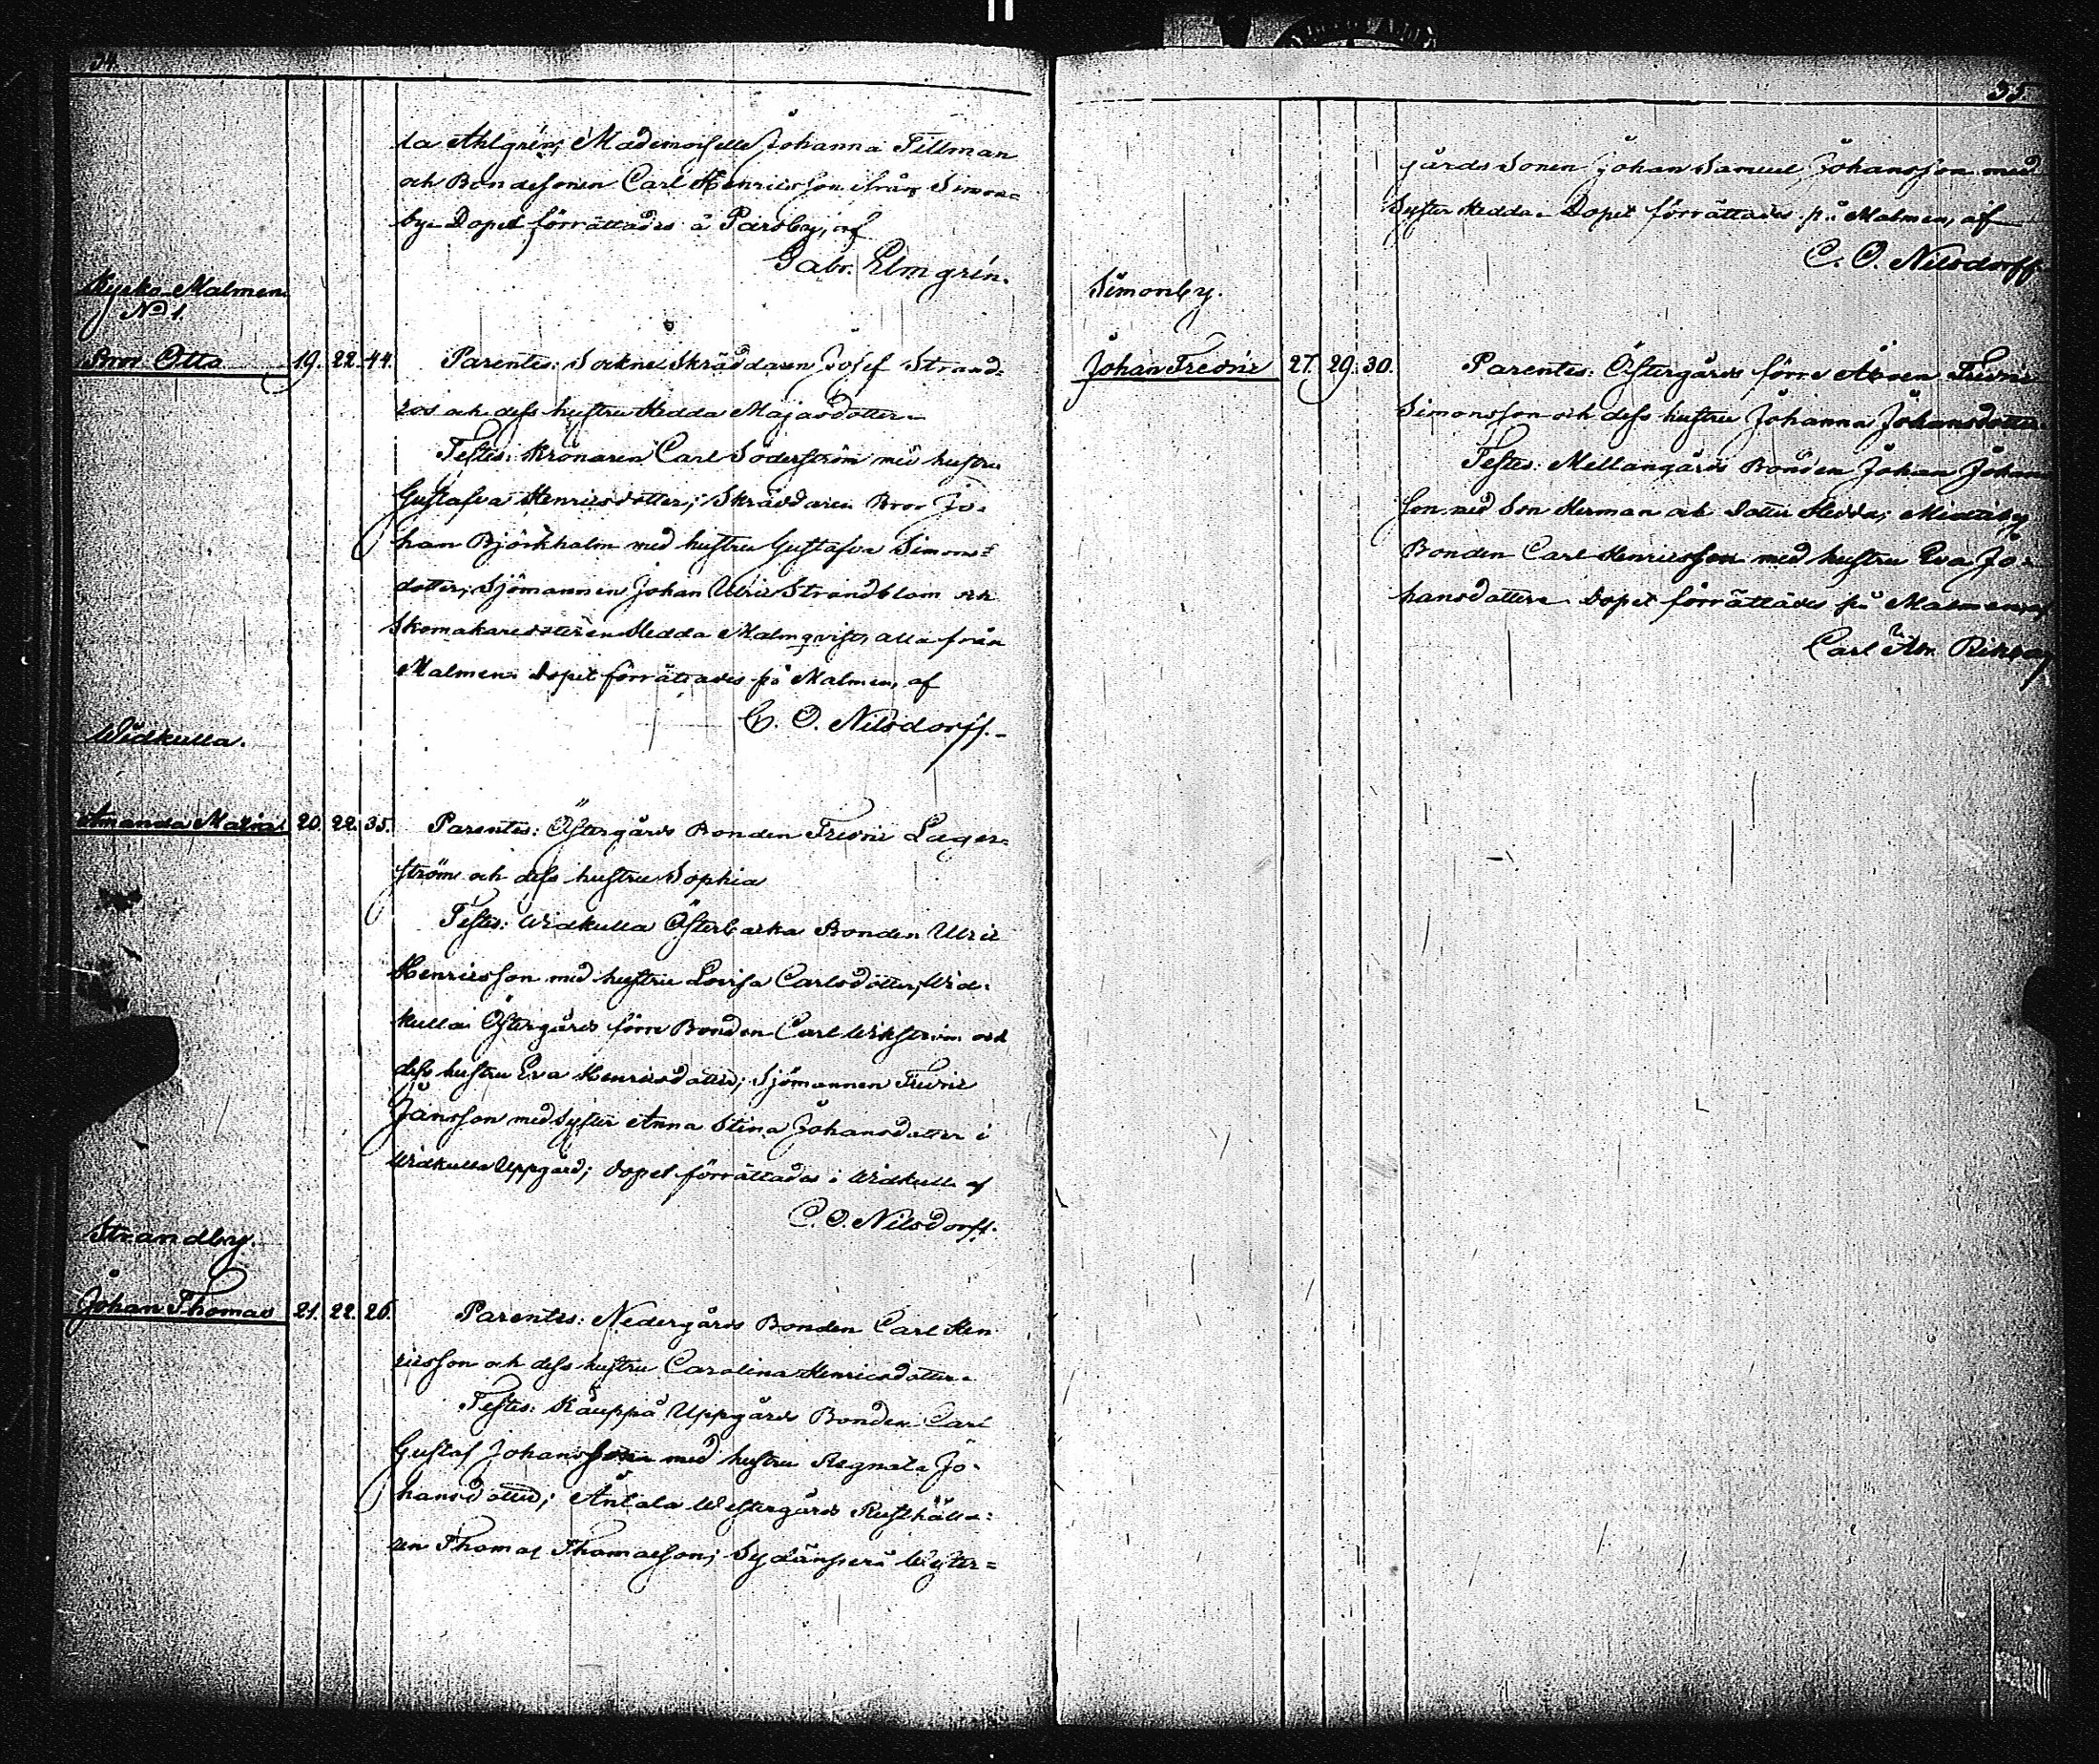 54.
la Ahlgrén; Mademoiselle Johanna Tillman
och Bondesonen Carl Henricsson från Simons=
by. Dopet förrättades å Parsby, af
Gabr. Elmgrén.
Kyrko Malmen
No 1.
Bror Otto 19. 22. 44. Parentes: Sockne Skräddaren Josef Strand=
ros och dess hustru Hedda Majasdotter.
Testes: Kronaren Carl Söderström med hustru
Gustafva Henricsdotter; Skräddaren Bror Jo=
han Björkholm med hustru Gustafva Simons=
dotter; Sjömannen Johan Ulric Strandblom och
Skomakaredottren Hedda Malmqvist, alla från
Malmen. Dopet förrättades på Malmen, af
C. O. Nilsdorff.
Widkulla.
Amanda Maria 20. 22. 35. Parentes: Östergårds Bonden Fredric Lager=
ström och dess hustru Sophia
Testes: Widkulla Österbacka Bonden Ulric
Henricsson med hustru Lovisa Carlsdotter; Wid=
kulla Östergårds förre Bonden Carl Wikström och
dess hustru Eva Henricsdotter; Sjömannen Fredric
Jansson med Syster Anna Stina Johansdotter i
Widkulla Uppgård; dopet förrättades i Widkulla af
C. O. Nilsdorff.
Strandby.
Johan Thomas 21. 22. 26. Parentes: Nedergårds Bonden Carl Hen
ricsson och dess hustru Carolina Henricsdotter.
Testes: Kauppa Uppgårds Bonden Carl
Gustaf Johansson med hustru Regnata Jo=
hansdotter; Antala Westergårds Rusthålla=
ren Thomas Thomasson; Sydänperä Wäster=
55.
gårds Sonen Johan Samuel Johansson med
Syster Hedda. Dopet förrättades på Malmen, af
C. O. Nilsdorff.
Simonby.
Johan Fredric 27. 29. 30. Parentes: Östergårds förre Åboen Fredric
Simonsson och dess hustru Johanna Johansdotter.
Testes: Mellangårds Bonden Johan Johans
son med Son Herman och dotter Hedda;
Bonden Carl Henricsson med hustru Eva Jo=
hansdotter. Dopet förrättades på Malmen, af
Carl Abr.